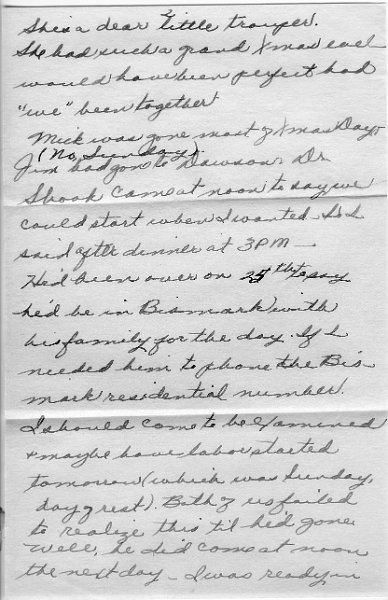 She's a dear little trouper.
She had such a grand Xmas eve -
would have been perfect had
"we" been together
Mick was gone most of Xmas Day,
(No, Sunday).
Jim had gone to Dawson & Dr
Shook came at noon to say we
could start when I wanted. So I
said after dinner at 3 PM -
He'd been over on 24th to say
he'd be in Bismark with
his family for the day. If I
needed him to phone the Bis
mark residential number.
I should come to be examined
& maybe have labor started
tomorrow (which was Sunday,
day of rest). Both of us failed
to realize this til he'd gone
Well, he did come at noon
the next day - I was ready in